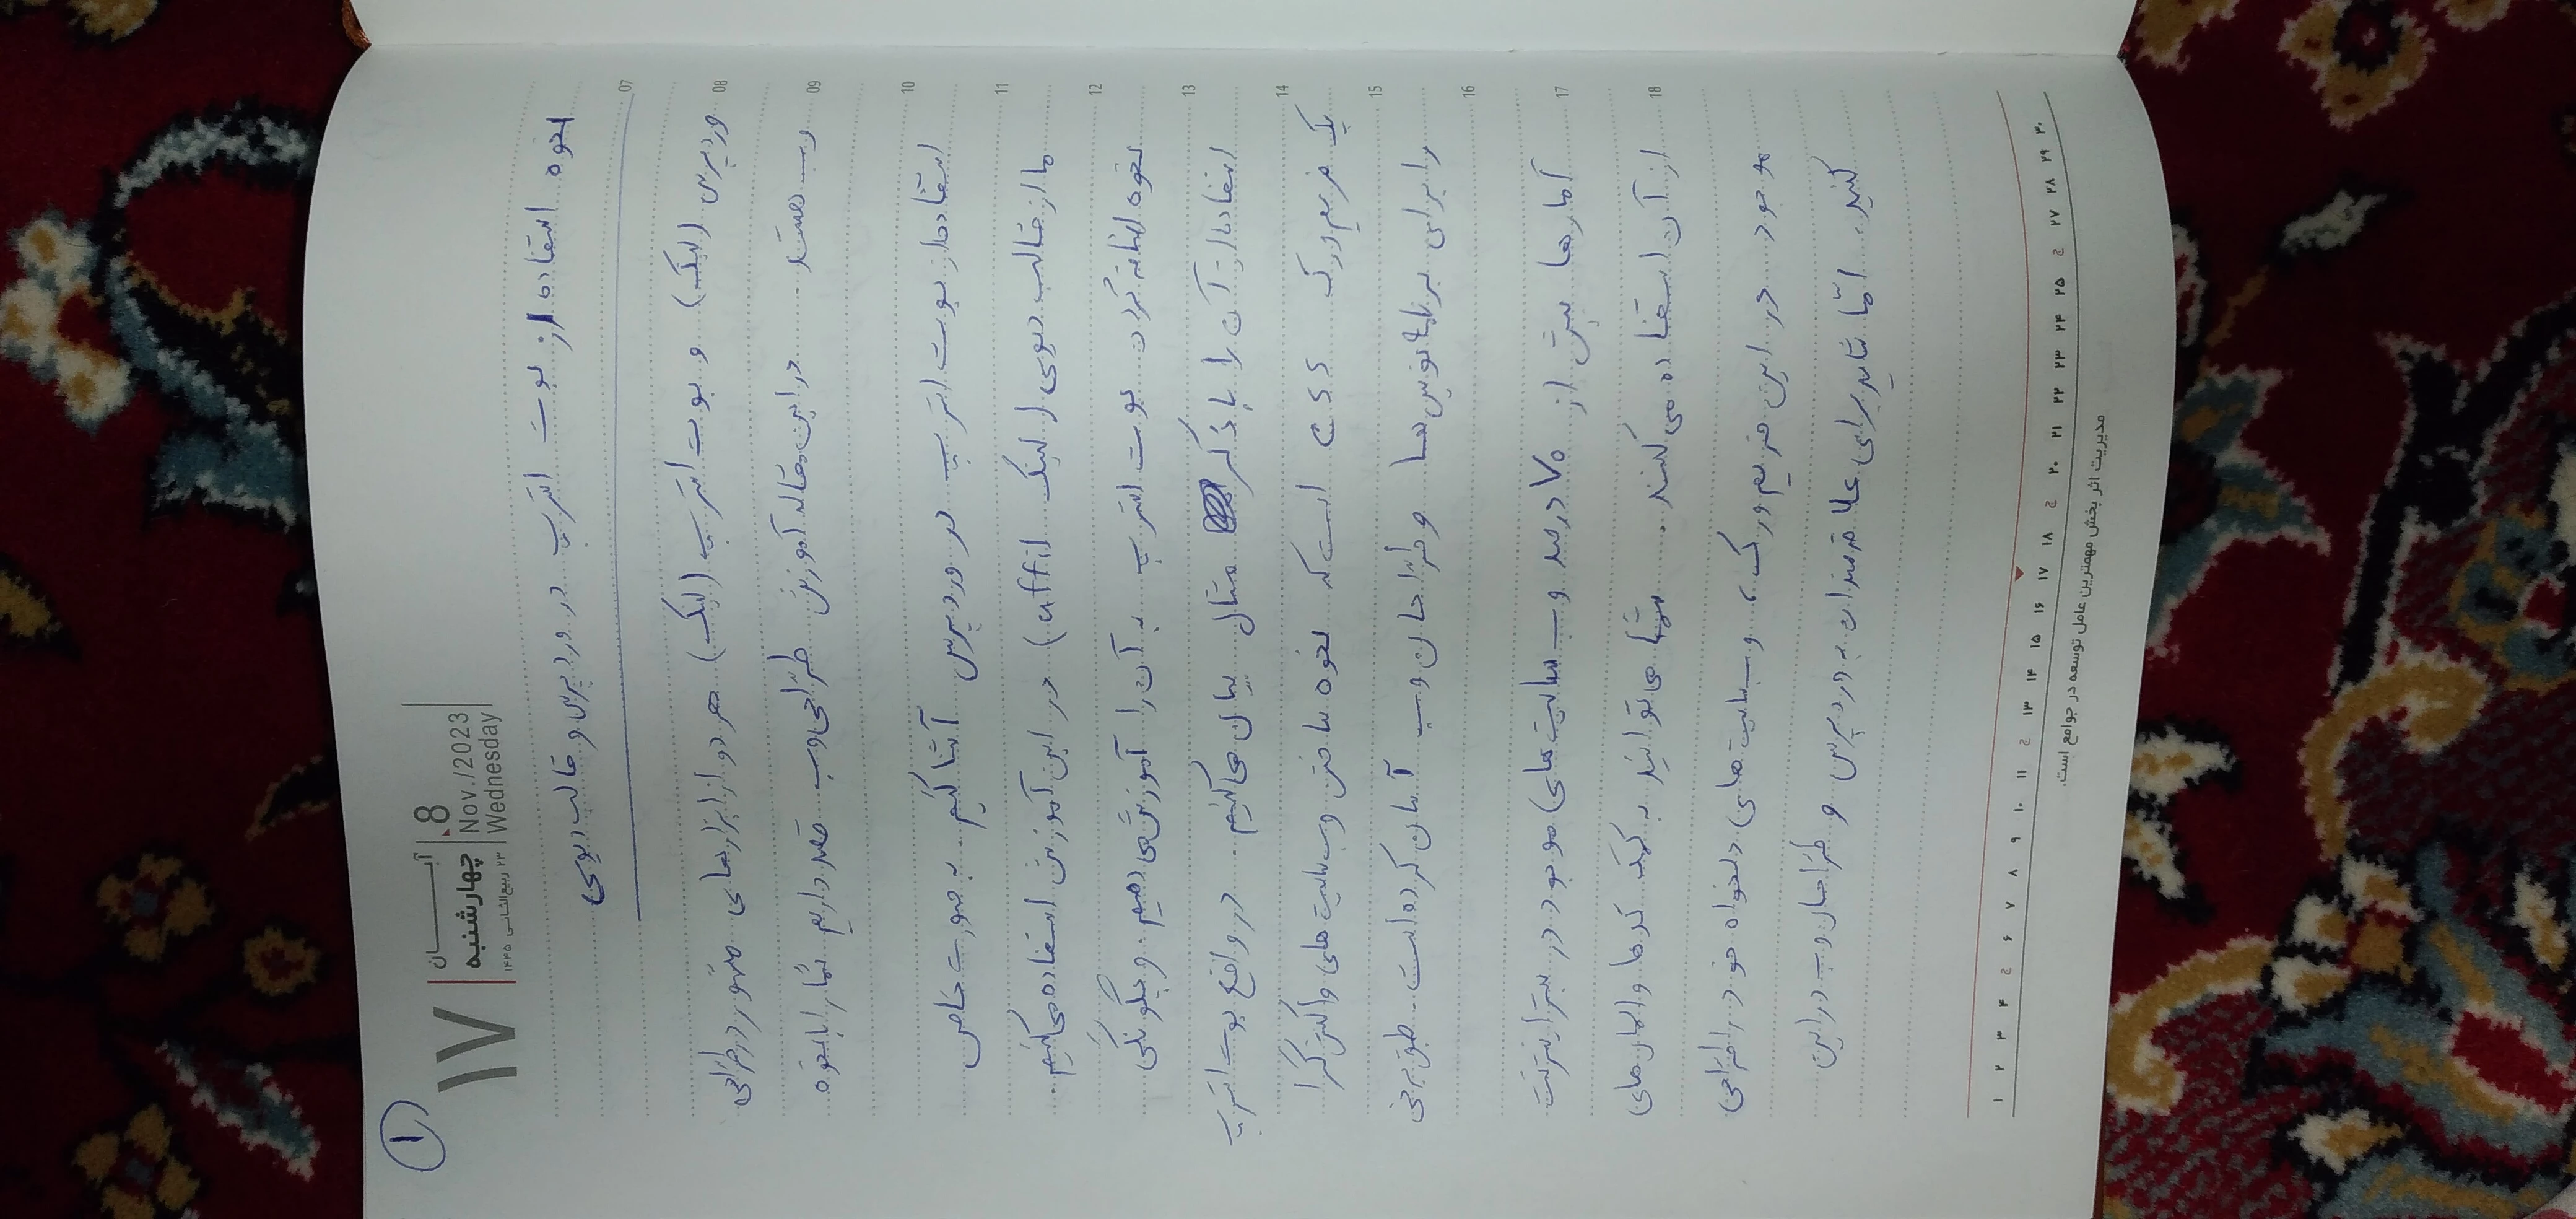 ۱
۱۷
آبان
چهارشنبه
۲۳ ربیع‌الثانی ۱۴۴۵
8
Nov./2023
Wednesday
نحوه استفاده از بوت استرپ در وردپرس و قالب دیوی
07
وردپرس (لینک) و بوت استرپ (لینک) هر دو از ابزارهای مشهور در طراحی
08
وب هستند. در این مقاله آموزش طراحی وب قصد داریم شما را با نحوه
09
استفاده از بوت استرپ در وردپرس آشنا کنیم. به صورت خاص
10
ما از قالب دیوی (لینک affil) در این آموزش استفاده می‌کنیم.
11
نحوه اضافه کردن بوت استرپ به آن را آموزش می‌دهیم و چگونگی
12
استفاده از آن را با ذکر مثال بیان می‌کنیم. در واقع بوت استرپ
13
یک فریم‌ورک CSS است که نحوه ساختن وب‌سایت‌های واکنش‌گرا
14
را برای برنامه‌نویس‌ها و طراحان وب آسان کرده است. طبق برخی
15
16
آمارها بیش از ۷۰ درصد وب‌سایت‌های موجود در بستر اینترنت
17
از آن استفاده می‌کنند. شما می‌توانید به کمک کدها و المان‌های
18
موجود در این فریم‌ورک، وب‌سایت‌های دلخواه خود را طراحی
کنید. امّا شاید برای علاقمندان به وردپرس و طراحان وب در این
۱ ۲ ۳ ۴ ج ۶ ۷ ۸ ۹ ۱۰ ۱۱ ج ۱۳ ۱۴ ۱۵ ۱۶ ۱۷ ۱۸ ج ۲۰ ۲۱ ۲۲ ۲۳ ۲۴ ۲۵ ج ۲۷ ۲۸ ۲۹ ۳۰
مدیریت اثر بخش مهمترین عامل توسعه در جوامع است.